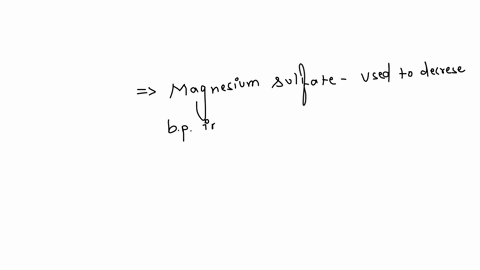 => Magnesium sulfate - used to decrese
b.p. in